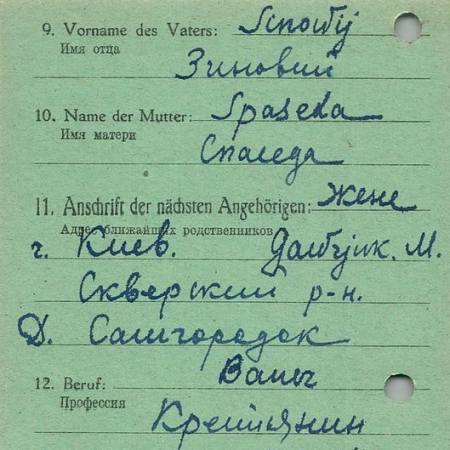 9. Vorname des Vaters: Sinowij
Имя отца
Зиновий
10. Name der Mutter: Spaseda
Имя матери
Спаседа
11. Anschrift der nächsten Angehörigen: жене
Адрес ближайших родственников
г. Киев. М.
Скверский р-н.
Д. Самгородок
12. Beruf: Bauer
Профессия
Крестьянин